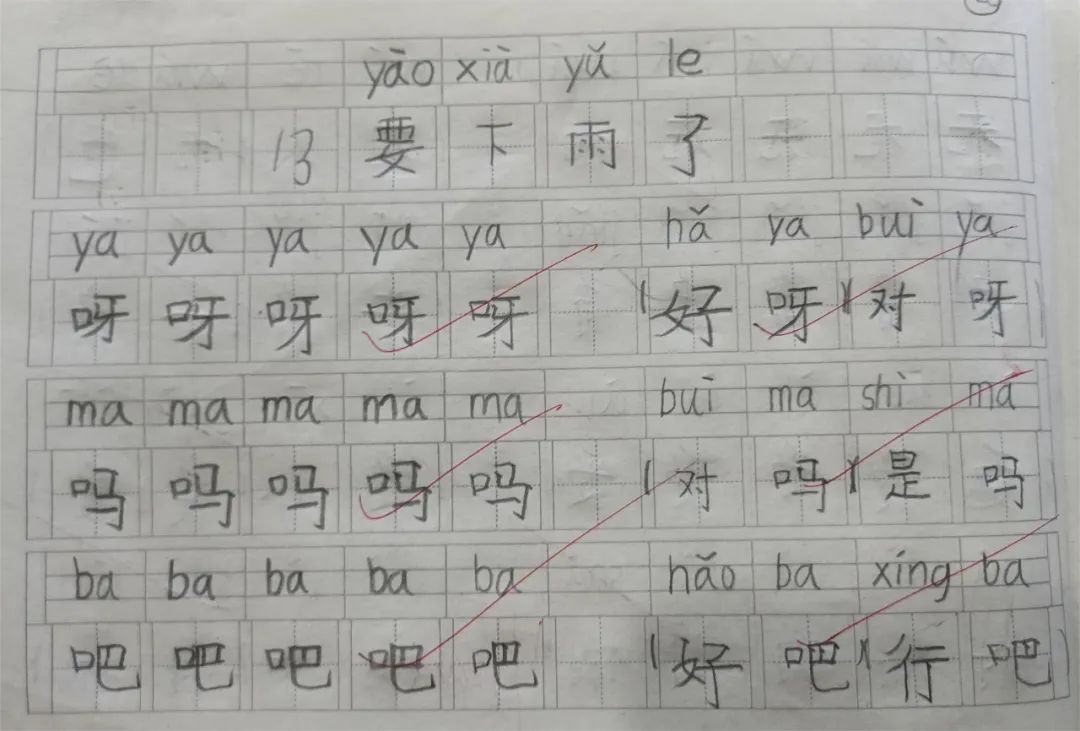 yào xià yǔ le
13 要下雨了
ya ya ya ya ya hǎ ya buì ya
呀 呀 呀 呀 呀 (好呀)(对呀)
ma ma ma ma ma buì ma shì ma
吗 吗 吗 吗 吗 (对吗)(是吗)
ba ba ba ba ba hǎo ba xíng ba
吧 吧 吧 吧 吧 (好吧)(行吧)